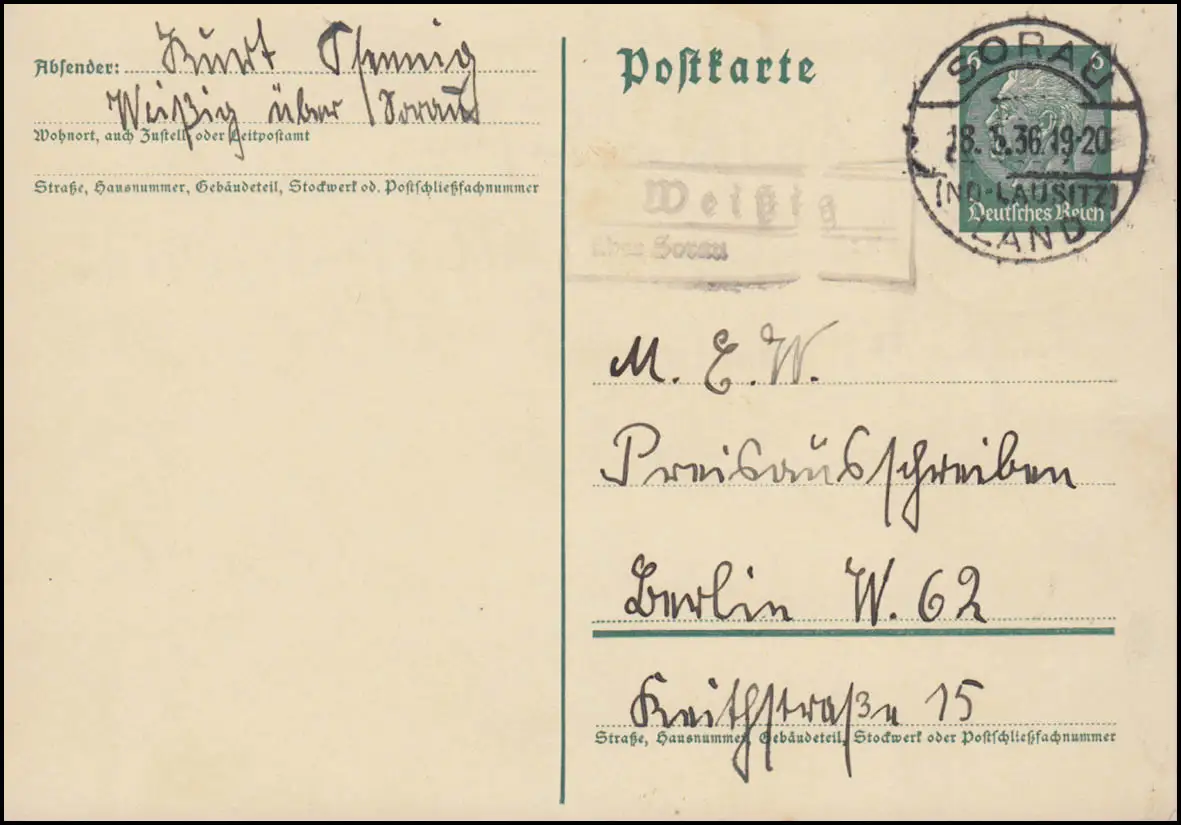 Absender: Kurt Pfennig
Weißig über Sorau
Wohnort, auch Zustell- oder Leitpostamt
Straße, Hausnummer, Gebäudeteil, Stockwerk od. Postschließfachnummer
Postkarte
6 6
Deutsches Reich
SORAU
18.5.36.19-20
(ND-LAUSITZ)
LAND
Weißig
über Sorau
M. E. W.
Preisausschreiben
Berlin W. 62
Keithstraße 15
Straße, Hausnummer, Gebäudeteil, Stockwerk oder Postschließfachnummer